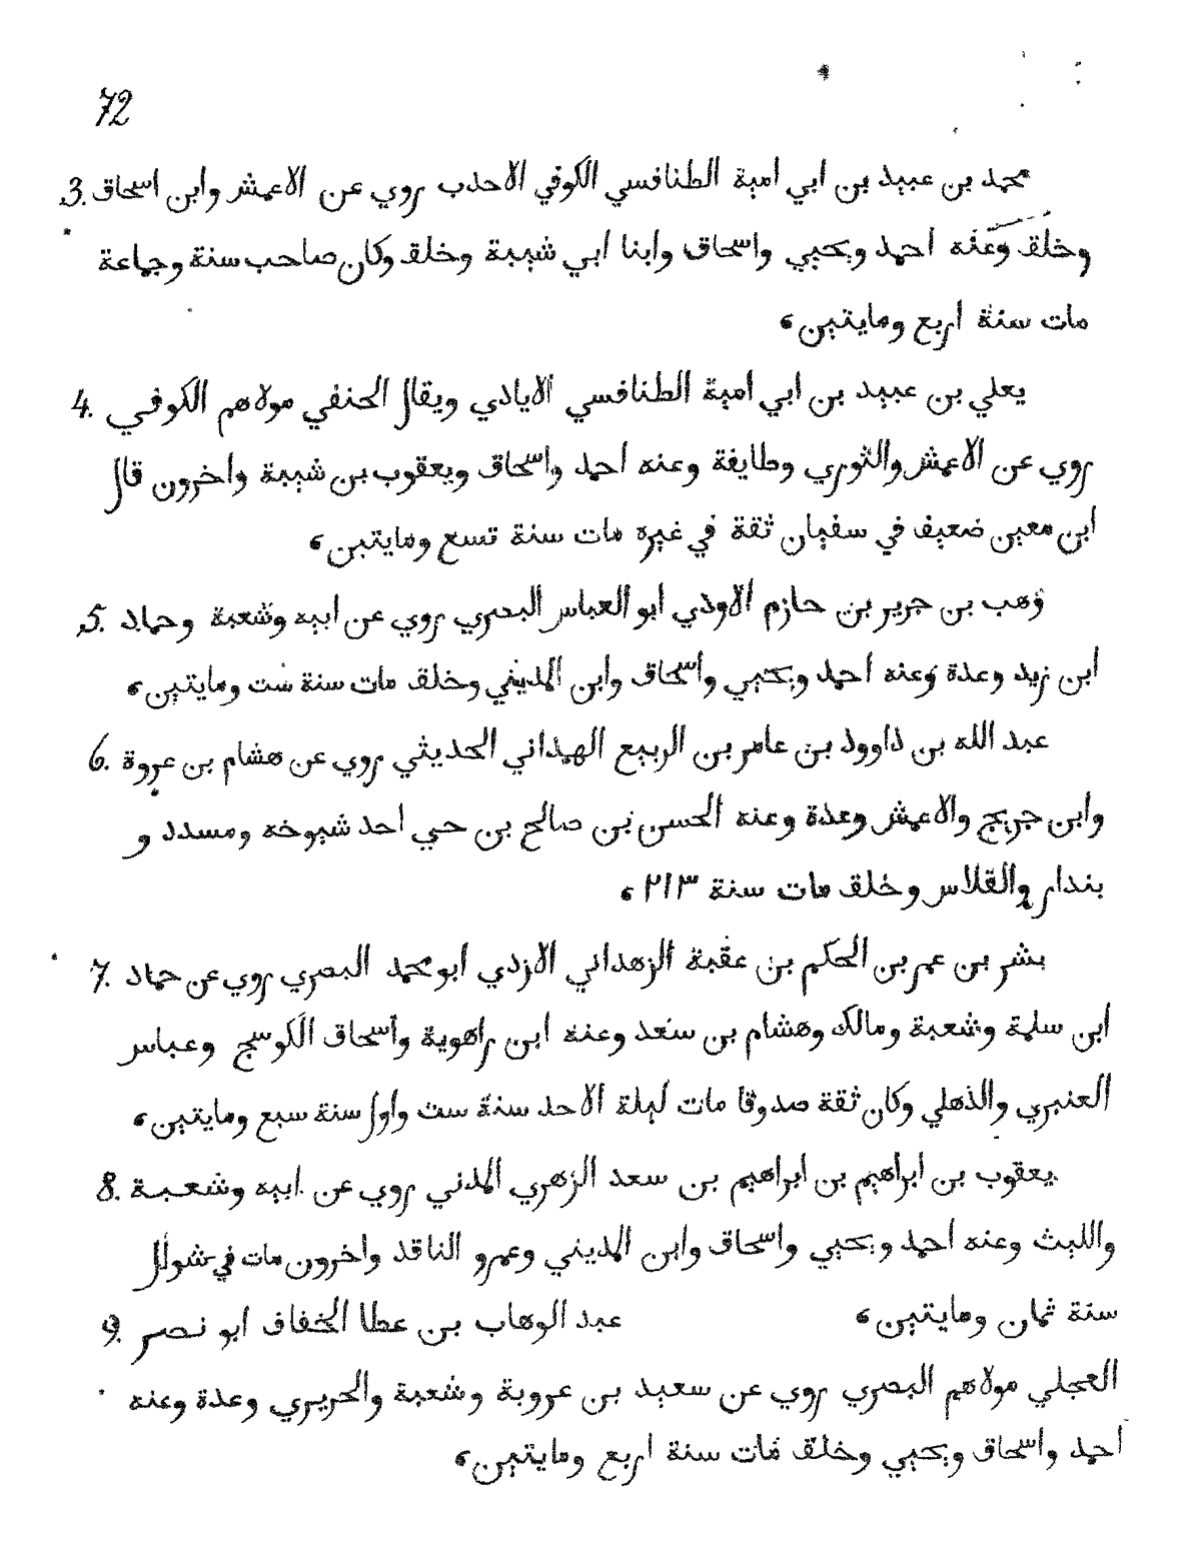 72
3. محمد بن عبيد بن ابي امية الطنافسي الكوفي الاحدب روي عن الاعمش وابن اسحاق
وخلق وعنه احمد ويحيي واسحاق وابنا ابي شيبة وخلق وكان صاحب سنة وجماعة
مات سنة اربع ومايتين،
4. يعلي بن عبيد بن ابي امية الطنافسي الايادي ويقال الحنفي مولاهم الكوفي
روي عن الاعمش والثوري وطايفة وعنه احمد واسحاق ويعقوب بن شيبة واخرون قال
ابن معين ضعيف في سفيان ثقة في غيره مات سنة تسع ومايتين،
5. وهب بن جرير بن حازم الاودي ابو العباس البصري روي عن ابيه وشعبة وحماد
ابن زيد وعدة وعنه احمد ويحيي واسحاق وابن المديني وخلق مات سنة ست ومايتين،
6. عبد الله بن داوود بن عامر بن الربيع الهمداني الحديثي روي عن هشام بن عروة
وابن جريج والاعمش وعدة وعنه الحسن بن صالح بن حي احد شيوخه ومسدد و
بندار والقلاس وخلق مات سنة ٢١٣،
7. بشر بن عمر بن الحكم بن عقبة الزهداني الازدي ابو محمد البصري روي عن حماد
ابن سلمة وشعبة ومالك وهشام بن سعد وعنه ابن راهوية واسحاق الكوسج وعباس
العنبري والذهلي وكان ثقة صدوقا مات ليلة الاحد سنة ست واول سنة سبع ومايتين،
8. يعقوب بن ابراهيم بن ابراهيم بن سعد الزهري المدني روي عن ابيه وشعبة
والليث وعنه احمد ويحيي واسحاق وابن المديني وعمرو الناقد واخرون مات في شوال
سنة ثمان ومايتين، 9. عبد الوهاب بن عطا الخفاف ابو نصر
العجلي مولاهم البصري روي عن سعيد بن عروبة وشعبة والحريري وعدة وعنه
احمد واسحاق ويحيي وخلق مات سنة اربع ومايتين،